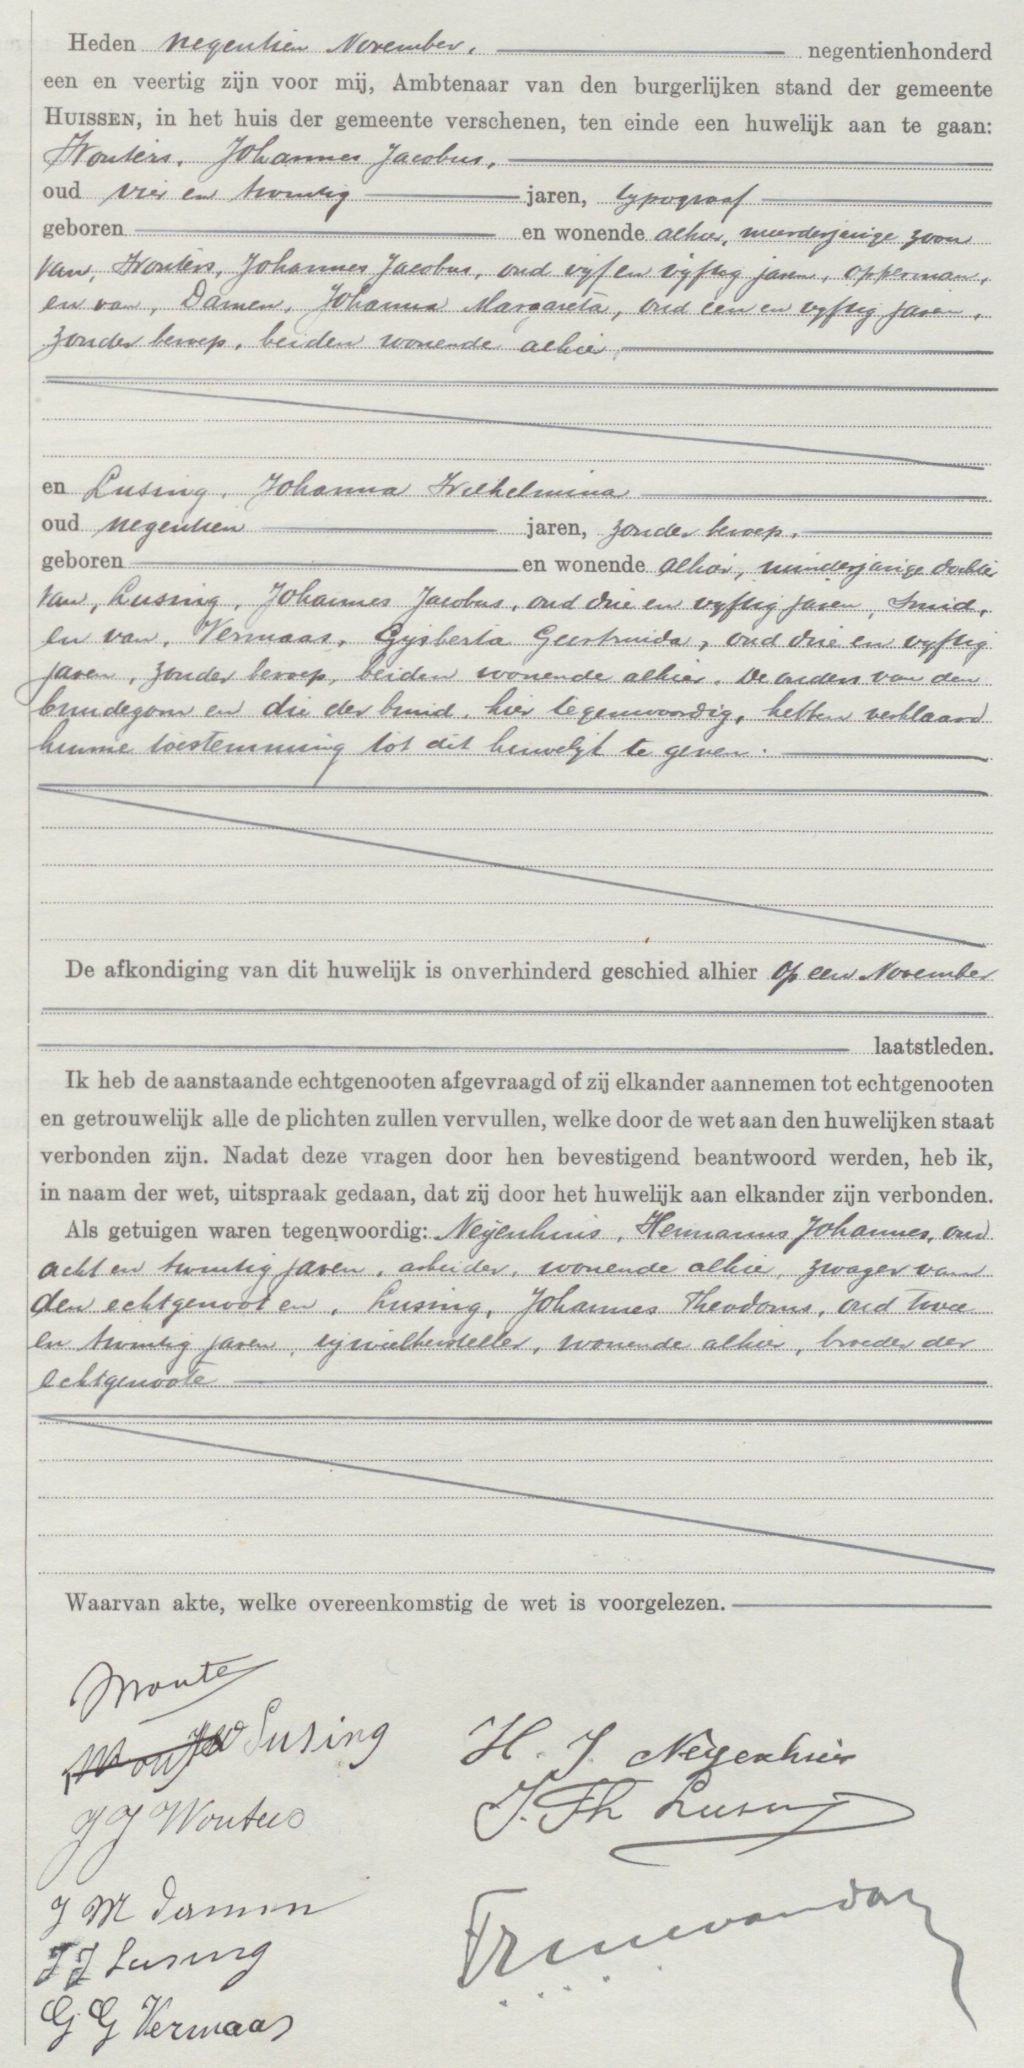 Heden negentien November. negentienhonderd
een en veertig zijn voor mij, Ambtenaar van den burgerlijken stand der gemeente
HUISSEN, in het huis der gemeente verschenen, ten einde een huwelijk aan te gaan:
Wouters, Johannes Jacobus,
oud vier en twintig jaren, typograaf
geboren en wonende alhier, meerderjarige zoon
van, Wouters, Johannes Jacobus, oud vijf en vijftig jaren, opperman,
en van, Damen, Johanna Margareta, oud een en vijftig jaren,
zonder beroep, beiden wonende alhier,
en Lusing, Johanna Wilhelmina
oud negentien jaren, zonder beroep,
geboren en wonende alhier, minderjarige dochter
van, Lusing, Johannes Jacobus, oud drie en vijftig jaren, smid,
en van, Vermaas, Gijsberta Geertruida, oud drie en vijftig
jaren, zonder beroep, beiden wonende alhier. De ouders van den
bruidegom en die der bruid, hier tegenwoordig, hebben verklaard
hunne toestemming tot dit huwelijk te geven.
De afkondiging van dit huwelijk is onverhinderd geschied alhier op een November
laatstleden.
Ik heb de aanstaande echtgenooten afgevraagd of zij elkander aannemen tot echtgenooten
en getrouwelijk alle de plichten zullen vervullen, welke door de wet aan den huwelijken staat
verbonden zijn. Nadat deze vragen door hen bevestigend beantwoord werden, heb ik,
in naam der wet, uitspraak gedaan, dat zij door het huwelijk aan elkander zijn verbonden.
Als getuigen waren tegenwoordig: Neijenhuis, Hermanus Johannes, oud
acht en twintig jaren, arbeider, wonende alhier, zwager van
den echtgenooten, Lusing, Johannes Theodorus, oud twee
en twintig jaren, rijwielhersteller, wonende alhier, broeder der
echtgenoote
Waarvan akte, welke overeenkomstig de wet is voorgelezen.
JW Lusing
H. J. Neijenhuis
J J Wouters
J. Th Lusing
J M Damen
J J Lusing
G G Vermaas